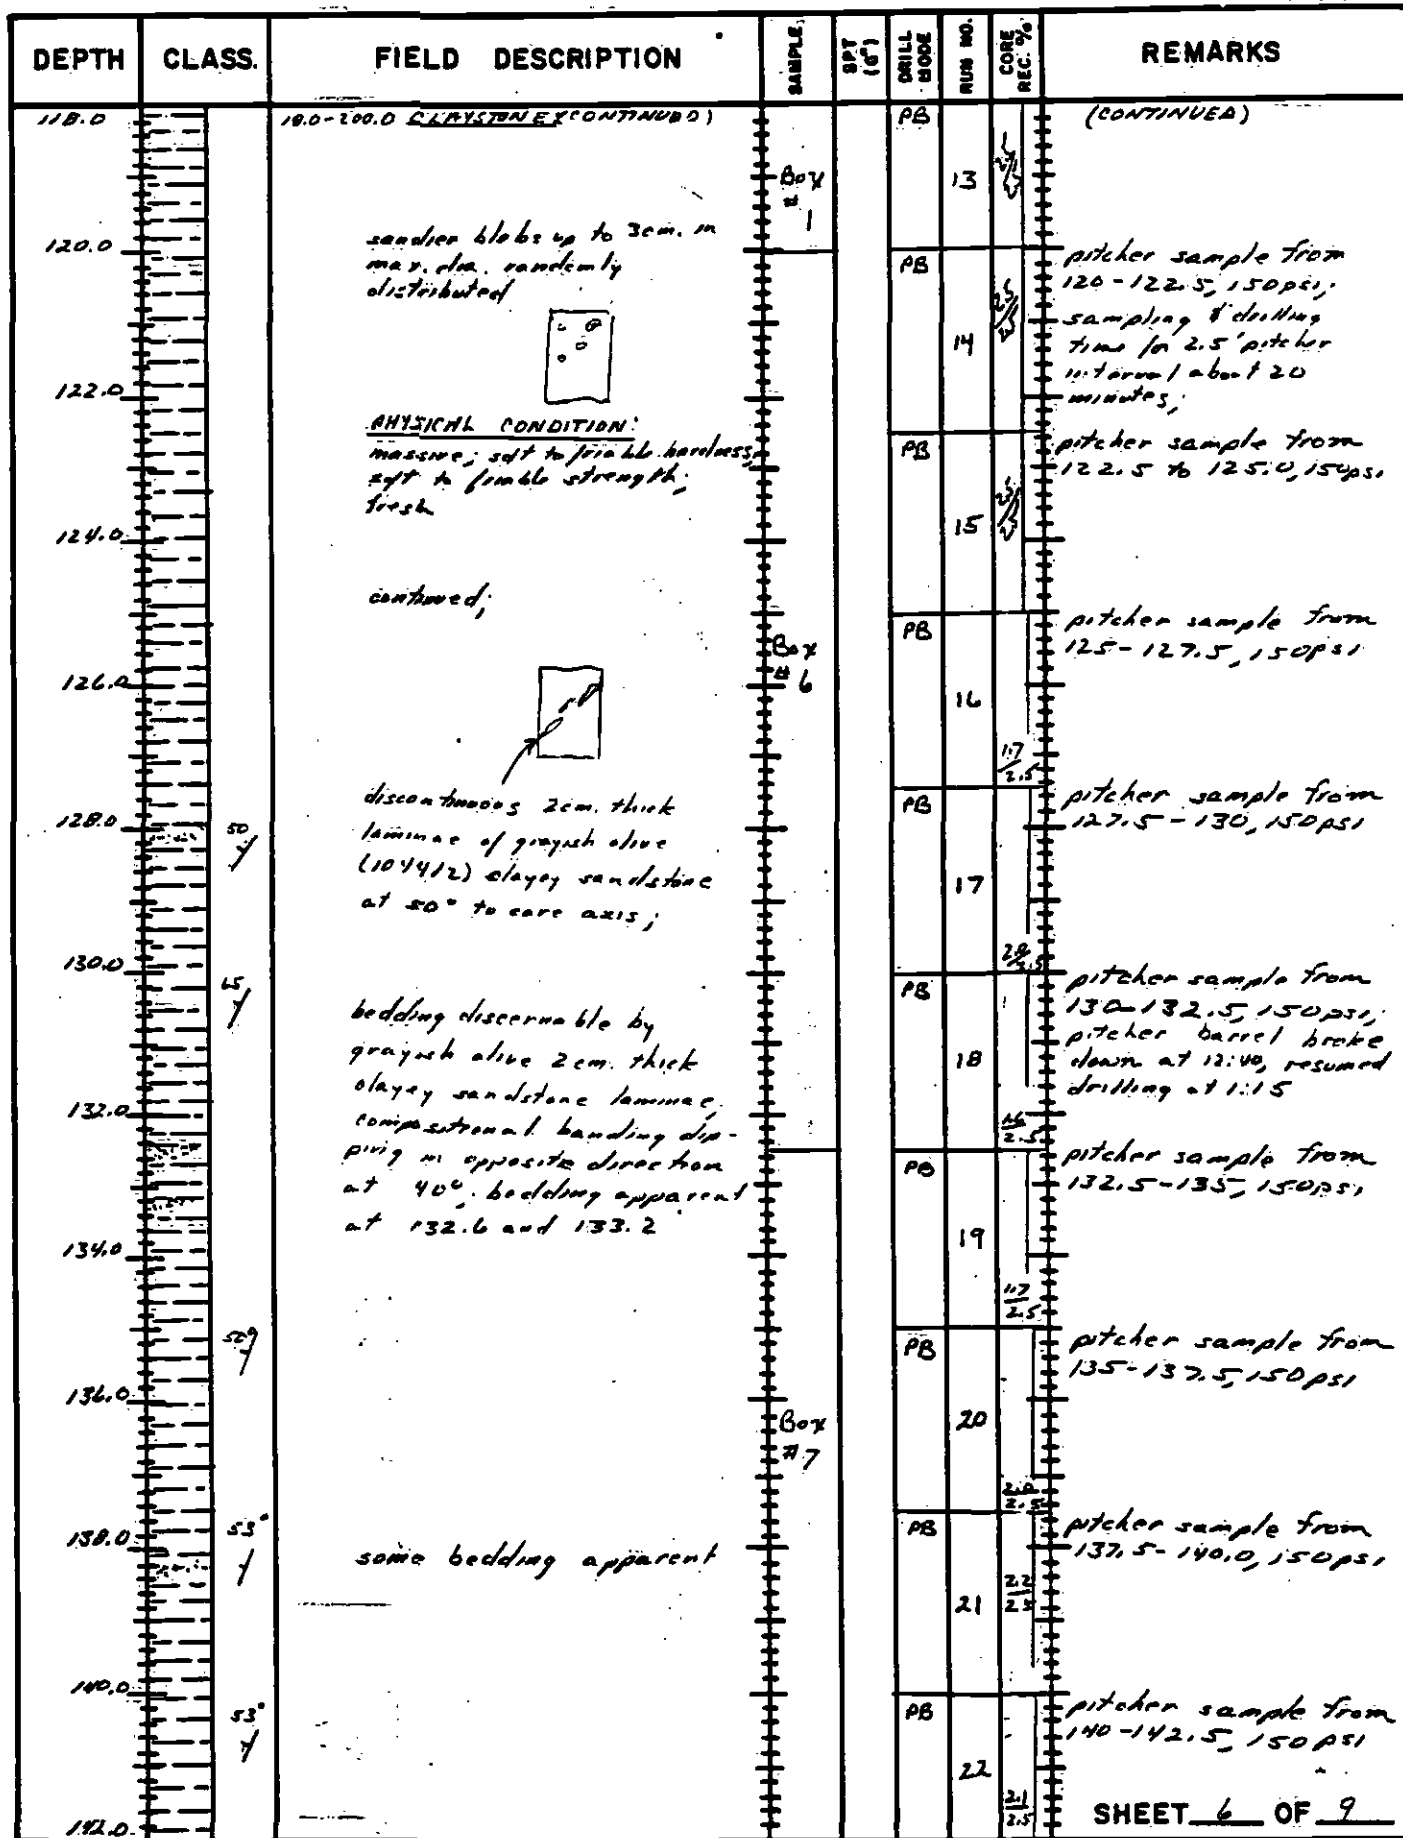 DEPTH CLASS. FIELD DESCRIPTION SAMPLE SPT (6") DRILL MODE RUN NO. CORE REC. % REMARKS
118.0
120.0
122.0
124.0
126.0
128.0
130.0
132.0
134.0
136.0
138.0
140.0
142.0
50
65
50°
53°
53°
18.0-200.0 CLAYSTONE (CONTINUED)
sandier blobs up to 3cm. in
max. dia. randomly
distributed
PHYSICAL CONDITION:
massive; soft to friable hardness,
soft to friable strength;
fresh
continued;
discontinuous 2cm. thick
laminae of grayish olive
(10Y4/2) clayey sandstone
at 50° to core axis;
bedding discernable by
grayish olive 2cm. thick
clayey sandstone laminae,
compositional banding dip-
ping in opposite direction
at 40°, bedding apparent
at 132.6 and 133.2
some bedding apparent
Box
#
1
Box
# 6
Box
#7
PB 13
PB 14 2.5/2.5
PB 15 2.5/2.5
PB 16 1.7/2.5
PB 17
PB 18 1.6/2.5
PB 19 1.7/2.5
PB 20
PB 21 2.2/2.5
PB 22 2.1/2.5
(CONTINUED)
pitcher sample from
120-122.5, 150psi;
sampling & drilling
time for 2.5' pitcher
interval about 20
minutes;
pitcher sample from
122.5 to 125.0, 150psi
pitcher sample from
125-127.5, 150psi
pitcher sample from
127.5-130, 150psi
pitcher sample from
130-132.5, 150psi;
pitcher barrel broke
down at 12:40, resumed
drilling at 1:15
pitcher sample from
132.5-135, 150psi
pitcher sample from
135-137.5, 150psi
pitcher sample from
137.5-140.0, 150psi
pitcher sample from
140-142.5, 150psi
SHEET 6 OF 9